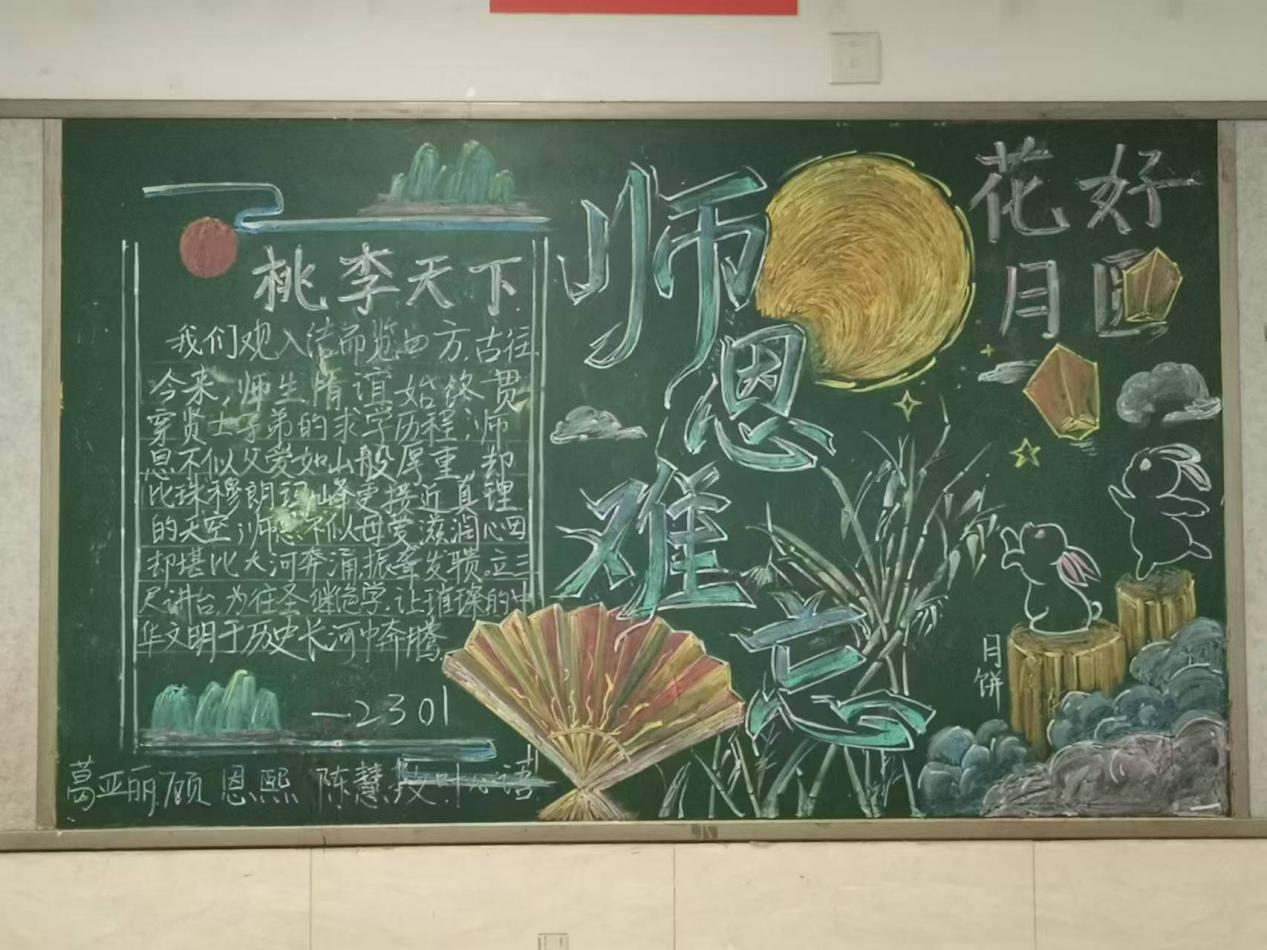 桃李天下
我们观入流而览四方,古往
今来,师生情谊始终贯
穿贤士子弟的求学历程,师
恩不似父爱如山般厚重,却
比珠穆朗玛峰更接近真理
的天空;师恩不似母爱滋润心田
却堪比大河奔涌,振聋发聩。立三
尺讲台,为往圣继绝学,让璀璨的中
华文明于历史长河中奔腾
—2301
葛亚丽 顾恩熙 陈慧敏 叶心语
师
恩
难
忘
花好
月圆
月饼